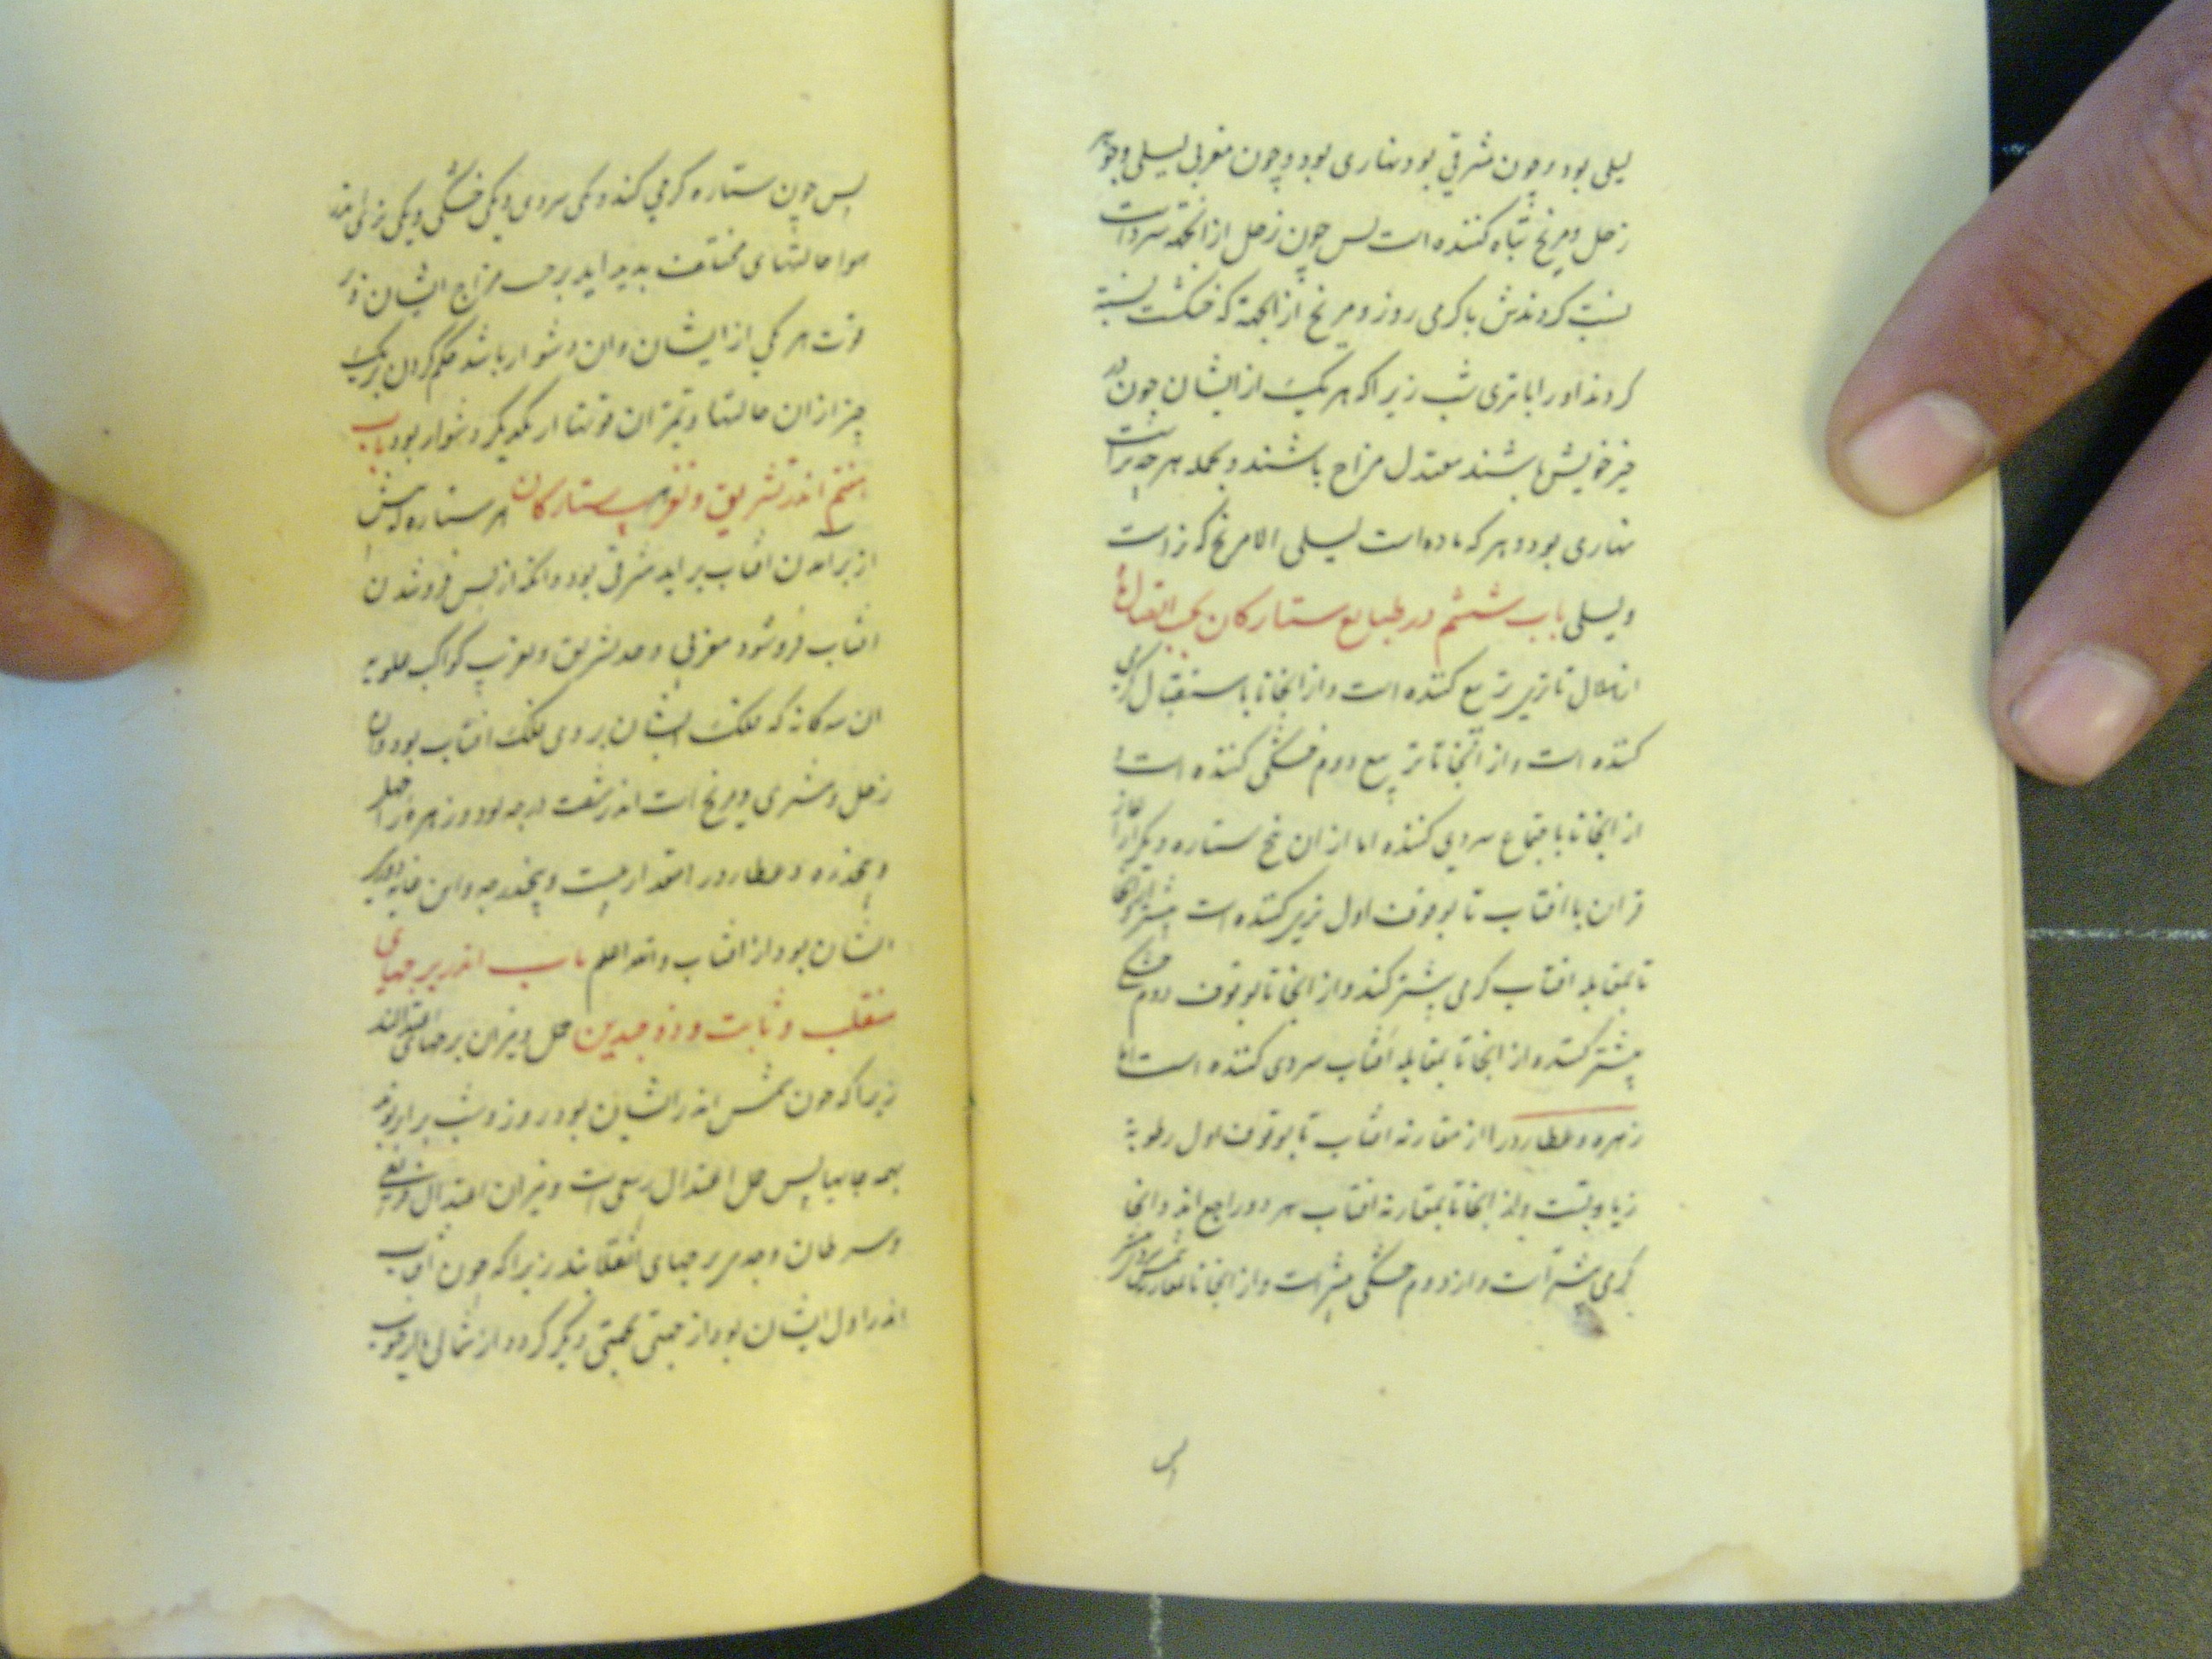 لیلی بود و چون مشرقی بود نهاری بود و چون مغربی لیلی و جوهر
زحل و مریخ تباه کننده است پس چون زحل از انجمله سرد است
نسبت کردندش با گرمی روز و مریخ از انجمله که خشکست نسبت
کردند او را با تری شب زیرا که هر یک از ایشان چون در
حیز خویش باشند معتدل مزاج باشند و بجمله هرچه نر است
نهاری بود و هر که ماده است لیلی الا مریخ که نر است
و لیلی باب ششم در طبایع ستارکان
کننده است و از انجا تا باستقبال گرمی
کننده است و از انجا تا تربیع دوم خشکی کننده است و
از انجا تا باجتماع سردی کننده اما از ان پنج ستاره دیکر
قران با افتاب تا بوقوف اول کننده است
تا بمقابله افتاب گرمی بیشتر کند و از انجا تا بوقوف دوم خشکی
بیشتر کننده و از انجا تا بمقابله افتاب سردی کننده است اما
زهره و عطارد را از مقارنه افتاب تا بوقوف اول رطوبة
زیادتست و از انجا تا بمقارنه افتاب هر دو راجع اند و انجا
گرمی بیشتر است و از دوم خشکی بیشتر است و از انجا تا
پس
پس چون ستاره گرمی کند و یکی سردی و یکی خشکی و یکی تری اندر
هوا حالتهای مختلف بدید اید بر حسب مزاج ایشان و بر
قوت هر یکی از ایشان و ان دشوار باشد حکم کردن بر یک
چیز از ان حالتها و تمیز ان قوتها از یکدیکر دشوار بود باب
هفتم اندر تشریق و تغریب ستارکان هر ستاره که پیش
از برامدن افتاب براید مشرقی بود و انکه از پس فروشدن
افتاب فروشود مغربی و حد تشریق و تغریب کواکب علویه
ان سه کانه که فلک ایشان بر وی فلک افتاب بود و ان
زحل و مشتری و مریخ است اندر شصت درجه بود و زهره را
و عطارد را مقدار بیست و پنجدرجه و این غایه دوری
ایشان بود از افتاب والله اعلم باب اندر برجهای
منقلب و ثابت و ذو جسدین حمل و میزان برجهای اعتدالند
زیرا که چون شمس اندر ایشان بود روز و شب برابر بوند
بهمه جایها پس حمل اعتدال ربیعی است و میزان اعتدال خریفی
و سرطان و جدی برجهای انقلابند زیرا که چون افتاب
اندر اول ایشان بود از جهتی بجهتی دیکر کردد از شمالی یا از جنوب